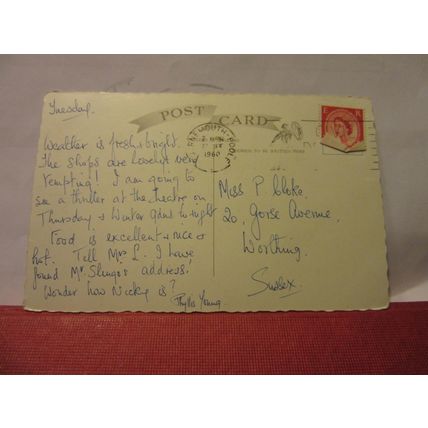 Tuesday.
POST CARD
Weather is fresh & bright.
The shops are lovely & very
tempting! I am going to
see a thriller at the theatre on
Thursday & Winter Gdns tonight
Food is excellent & nice &
hot. Tell Mrs L. I have
found Mr. Slinger's address.
Wonder how Nicky is?
Phyllis Young
BOURNEMOUTH-POOLE
1960
Miss P. Cloke,
20, Gorse Avenue,
Worthing,
Sussex.